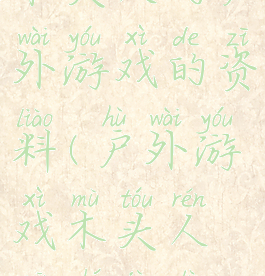 wài yóu xì de zī
外游戏的资
liào ( hù wài yóu
料(户外游
xì mù tóu rén
戏木头人